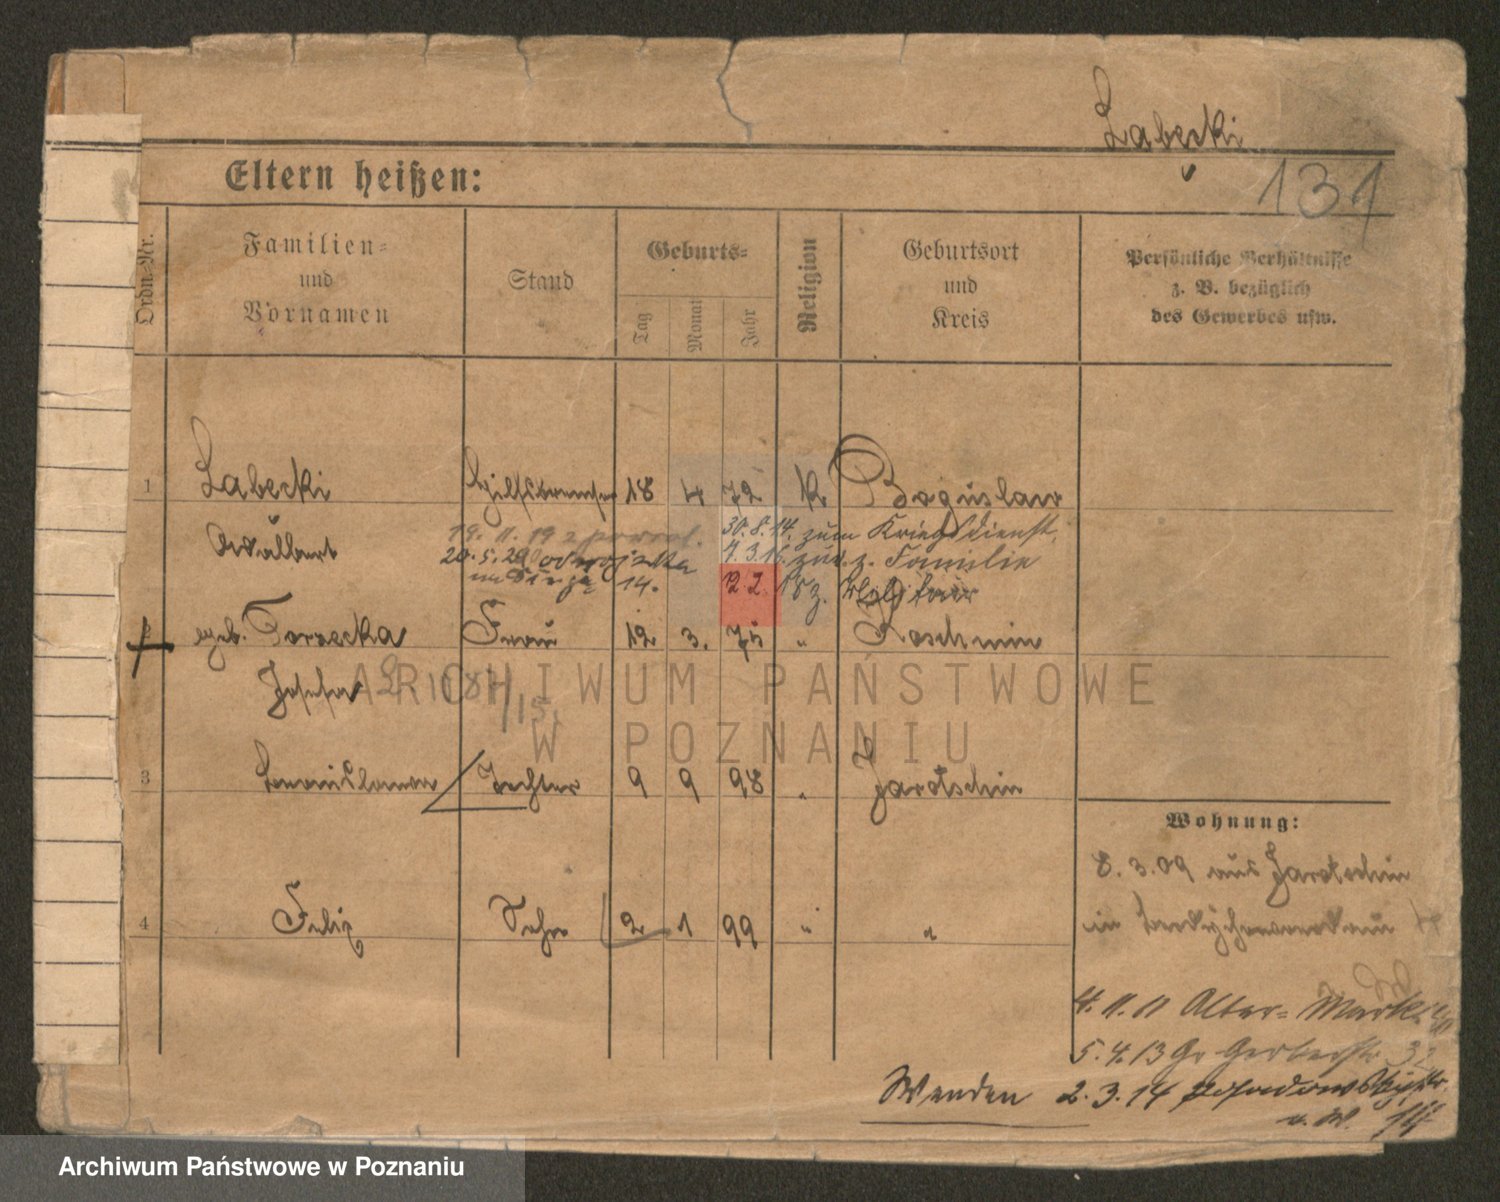 Łabecki
131
Eltern heißen:
Ordn.-Nr.
Familien-
und
Vornamen
Stand
Geburts-
Tag
Monat
Jahr
Religion
Geburtsort
und
Kreis
Persönliche Verhältnisse
z. B. bezüglich
des Gewerbes usw.
1 Łabecki Hilfsbremser 18 4 72 k Boguslaw
19. 11. 19 z powrot. 30. 8. 14. zum Kriegsdienst.
20. 5. 20 od wojska 7. 3. 16. zur. z. Familie
14. 12. 2. 18 z. Militär
2 geb. Torzecka Frau 12 3. 75 " Koschmin
Josefa
/15.
ARCHIWUM PAŃSTWOWE
W POZNANIU
3 Tochter 9 9 98 " Jarotschin
4 Felix Sohn 2 1 99 " "
Wohnung:
8. 3. 09 aus Jarotschin
in
4. 11. 11 Alter-Markt
5. 4. 13 Gr Gerberstr. 32
Wenden 2. 3. 14
Archiwum Państwowe w Poznaniu